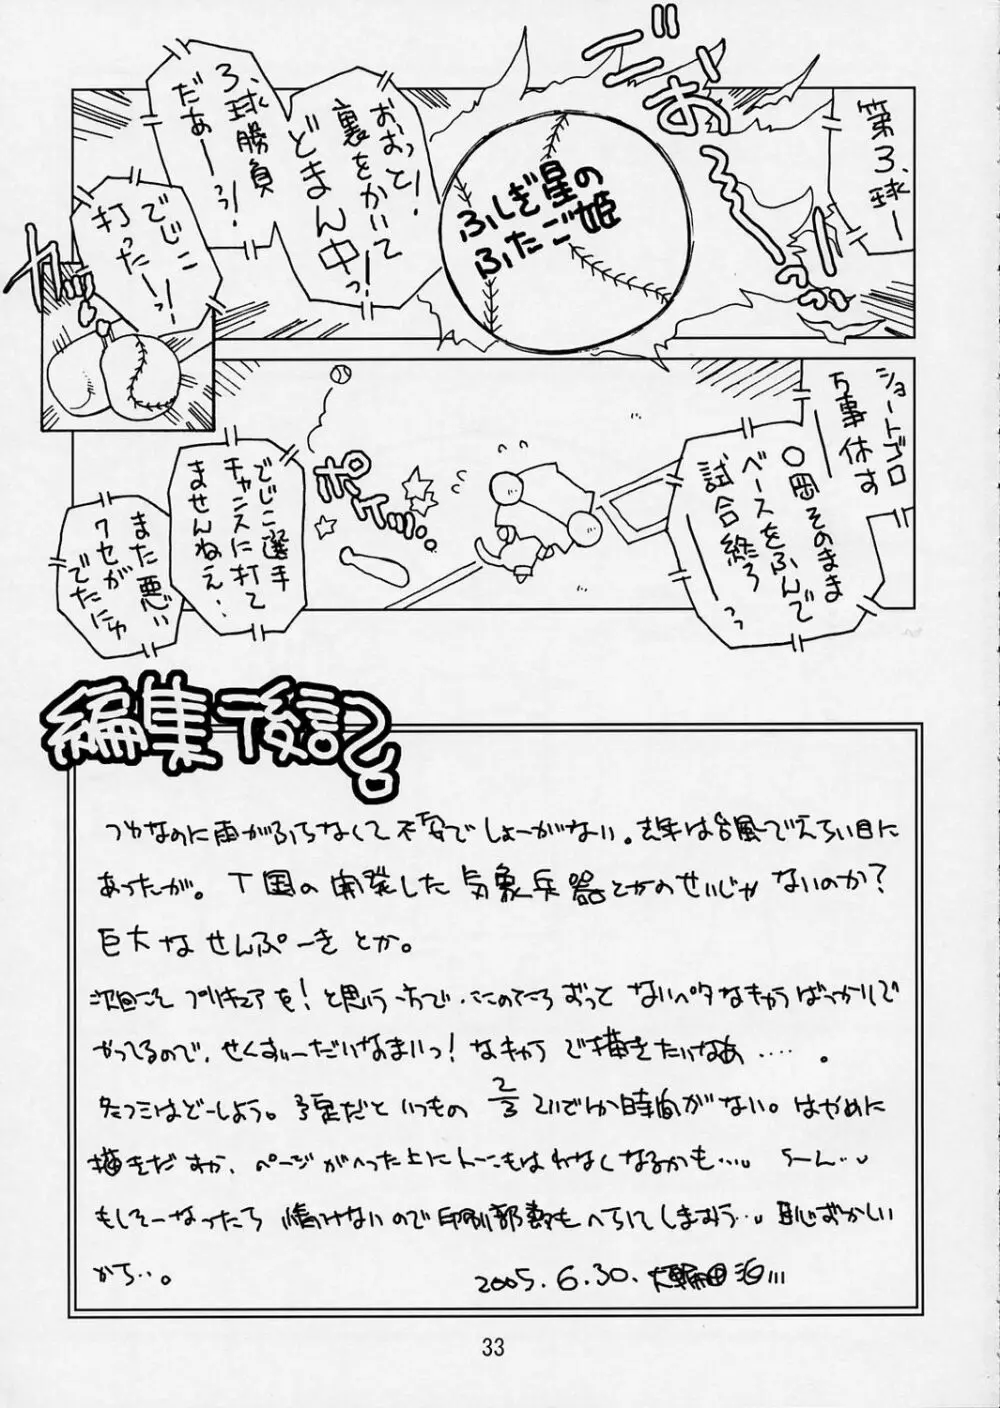 第3球ー
びお〜〜〜っっ
ふしぎ星の
ふたご姫
おおっと！
裏をかいて
どまん中っ！
3球勝負
だぁーっっ！
でじこ
打ったーっ！
カッ
ショートゴロ
万事休す
〇岡そのまま
ベースをふんで
試合終了
ーっっ
ポイッ…
でじこ選手
チャンスに打て
ませんねぇ…
また悪い
クセが
でたにゅ
編集後記。
つゆなのに雨がふらなくて不安でしょーがない。去年は台風でえらい目に
あったが。T国の開発した気象兵器とかのせいじゃないのか？
巨大なせんぷーきとか。
次回こそプリキュアを！と思う一方で、ここのところずっとないペタなキャラばっかりで
やってるので、せくすぃーだいなまいっ！なキャラで描きたいなあ……。
冬コミはどーしよう。3足だといつもの2/3くらいでしか時間がない。はやめに
描きだすか、ページがへった上にトーンもはれなくなるかも…。うーん…。
もしそーなったら情けないので印刷部数もへらしてしまおう…。恥ずかしい
から…。
2005.6.30. 大輪田泊///
33